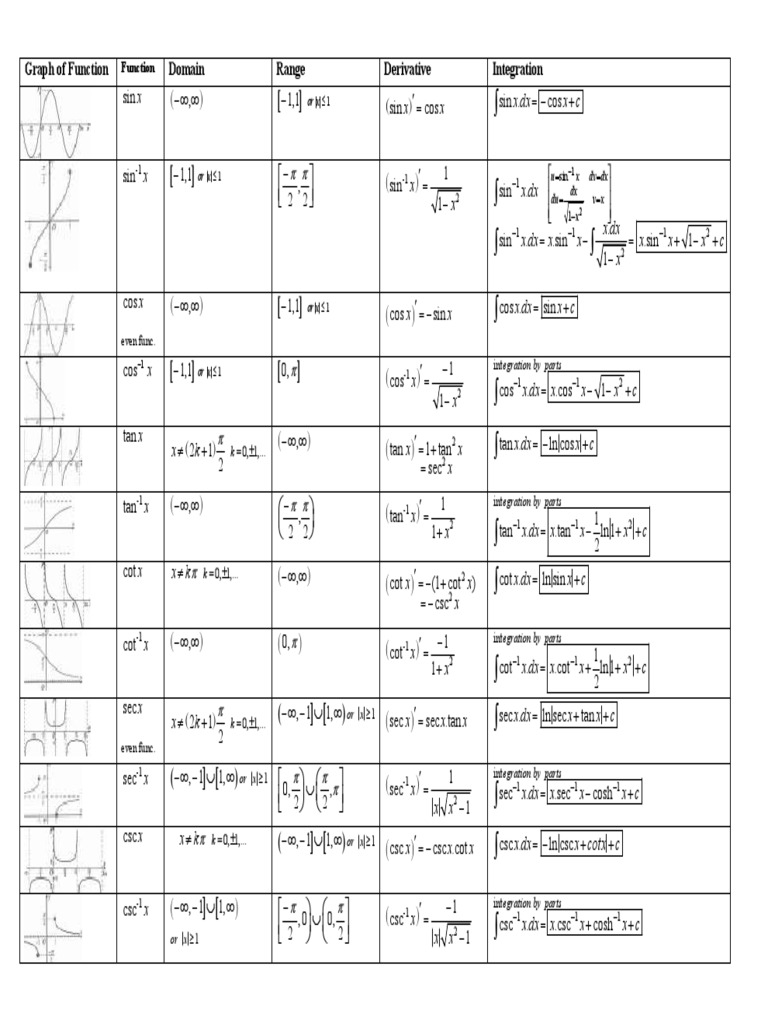 Graph of Function Function Domain Range Derivative Integration
sin x (−∞,∞) [−1,1] or |x|≤1 (sin x)′ = cos x ∫sin x.dx = −cos x + c
sin⁻¹ x [−1,1] or |x|≤1 [−π/2, π/2] (sin⁻¹ x)′ = 1/√(1−x²) ∫sin⁻¹ x.dx [u=sin⁻¹ x dv=dx du=dx/√(1−x²) v=x]
∫sin⁻¹ x.dx = x.sin⁻¹ x − ∫ x.dx/√(1−x²) = x.sin⁻¹ x + √(1−x²) + c
cos x (−∞,∞) [−1,1] or |x|≤1 (cos x)′ = −sin x ∫cos x.dx = sin x + c
even func.
cos⁻¹ x [−1,1] or |x|≤1 [0,π] (cos⁻¹ x)′ = −1/√(1−x²) integration by parts
∫cos⁻¹ x.dx = x.cos⁻¹ x − √(1−x²) + c
tan x x ≠ (2k+1) π/2 k=0,±1,... (−∞,∞) (tan x)′ = 1+tan² x ∫tan x.dx = −ln|cos x| + c
= sec² x
tan⁻¹ x (−∞,∞) (−π/2, π/2) (tan⁻¹ x)′ = 1/(1+x²) integration by parts
∫tan⁻¹ x.dx = x.tan⁻¹ x − 1/2 ln|1+x²| + c
cot x x ≠ kπ k=0,±1,... (−∞,∞) (cot x)′ = −(1+cot² x) ∫cot x.dx = ln|sin x| + c
= −csc² x
cot⁻¹ x (−∞,∞) (0,π) (cot⁻¹ x)′ = −1/(1+x²) integration by parts
∫cot⁻¹ x.dx = x.cot⁻¹ x + 1/2 ln|1+x²| + c
sec x x ≠ (2k+1) π/2 k=0,±1,... (−∞,−1]∪[1,∞) or |x|≥1 (sec x)′ = sec x.tan x ∫sec x.dx = ln|sec x + tan x| + c
even func.
sec⁻¹ x (−∞,−1]∪[1,∞) or |x|≥1 [0, π/2)∪(π/2, π] (sec⁻¹ x)′ = 1/(|x|√(x²−1)) integration by parts
∫sec⁻¹ x.dx = x.sec⁻¹ x − cosh⁻¹ x + c
csc x x ≠ kπ k=0,±1,... (−∞,−1]∪[1,∞) or |x|≥1 (csc x)′ = −csc x.cot x ∫csc x.dx = −ln|csc x + cotx| + c
csc⁻¹ x (−∞,−1]∪[1,∞) [−π/2, 0)∪(0, π/2] (csc⁻¹ x)′ = −1/(|x|√(x²−1)) integration by parts
or |x|≥1
∫csc⁻¹ x.dx = x.csc⁻¹ x + cosh⁻¹ x + c